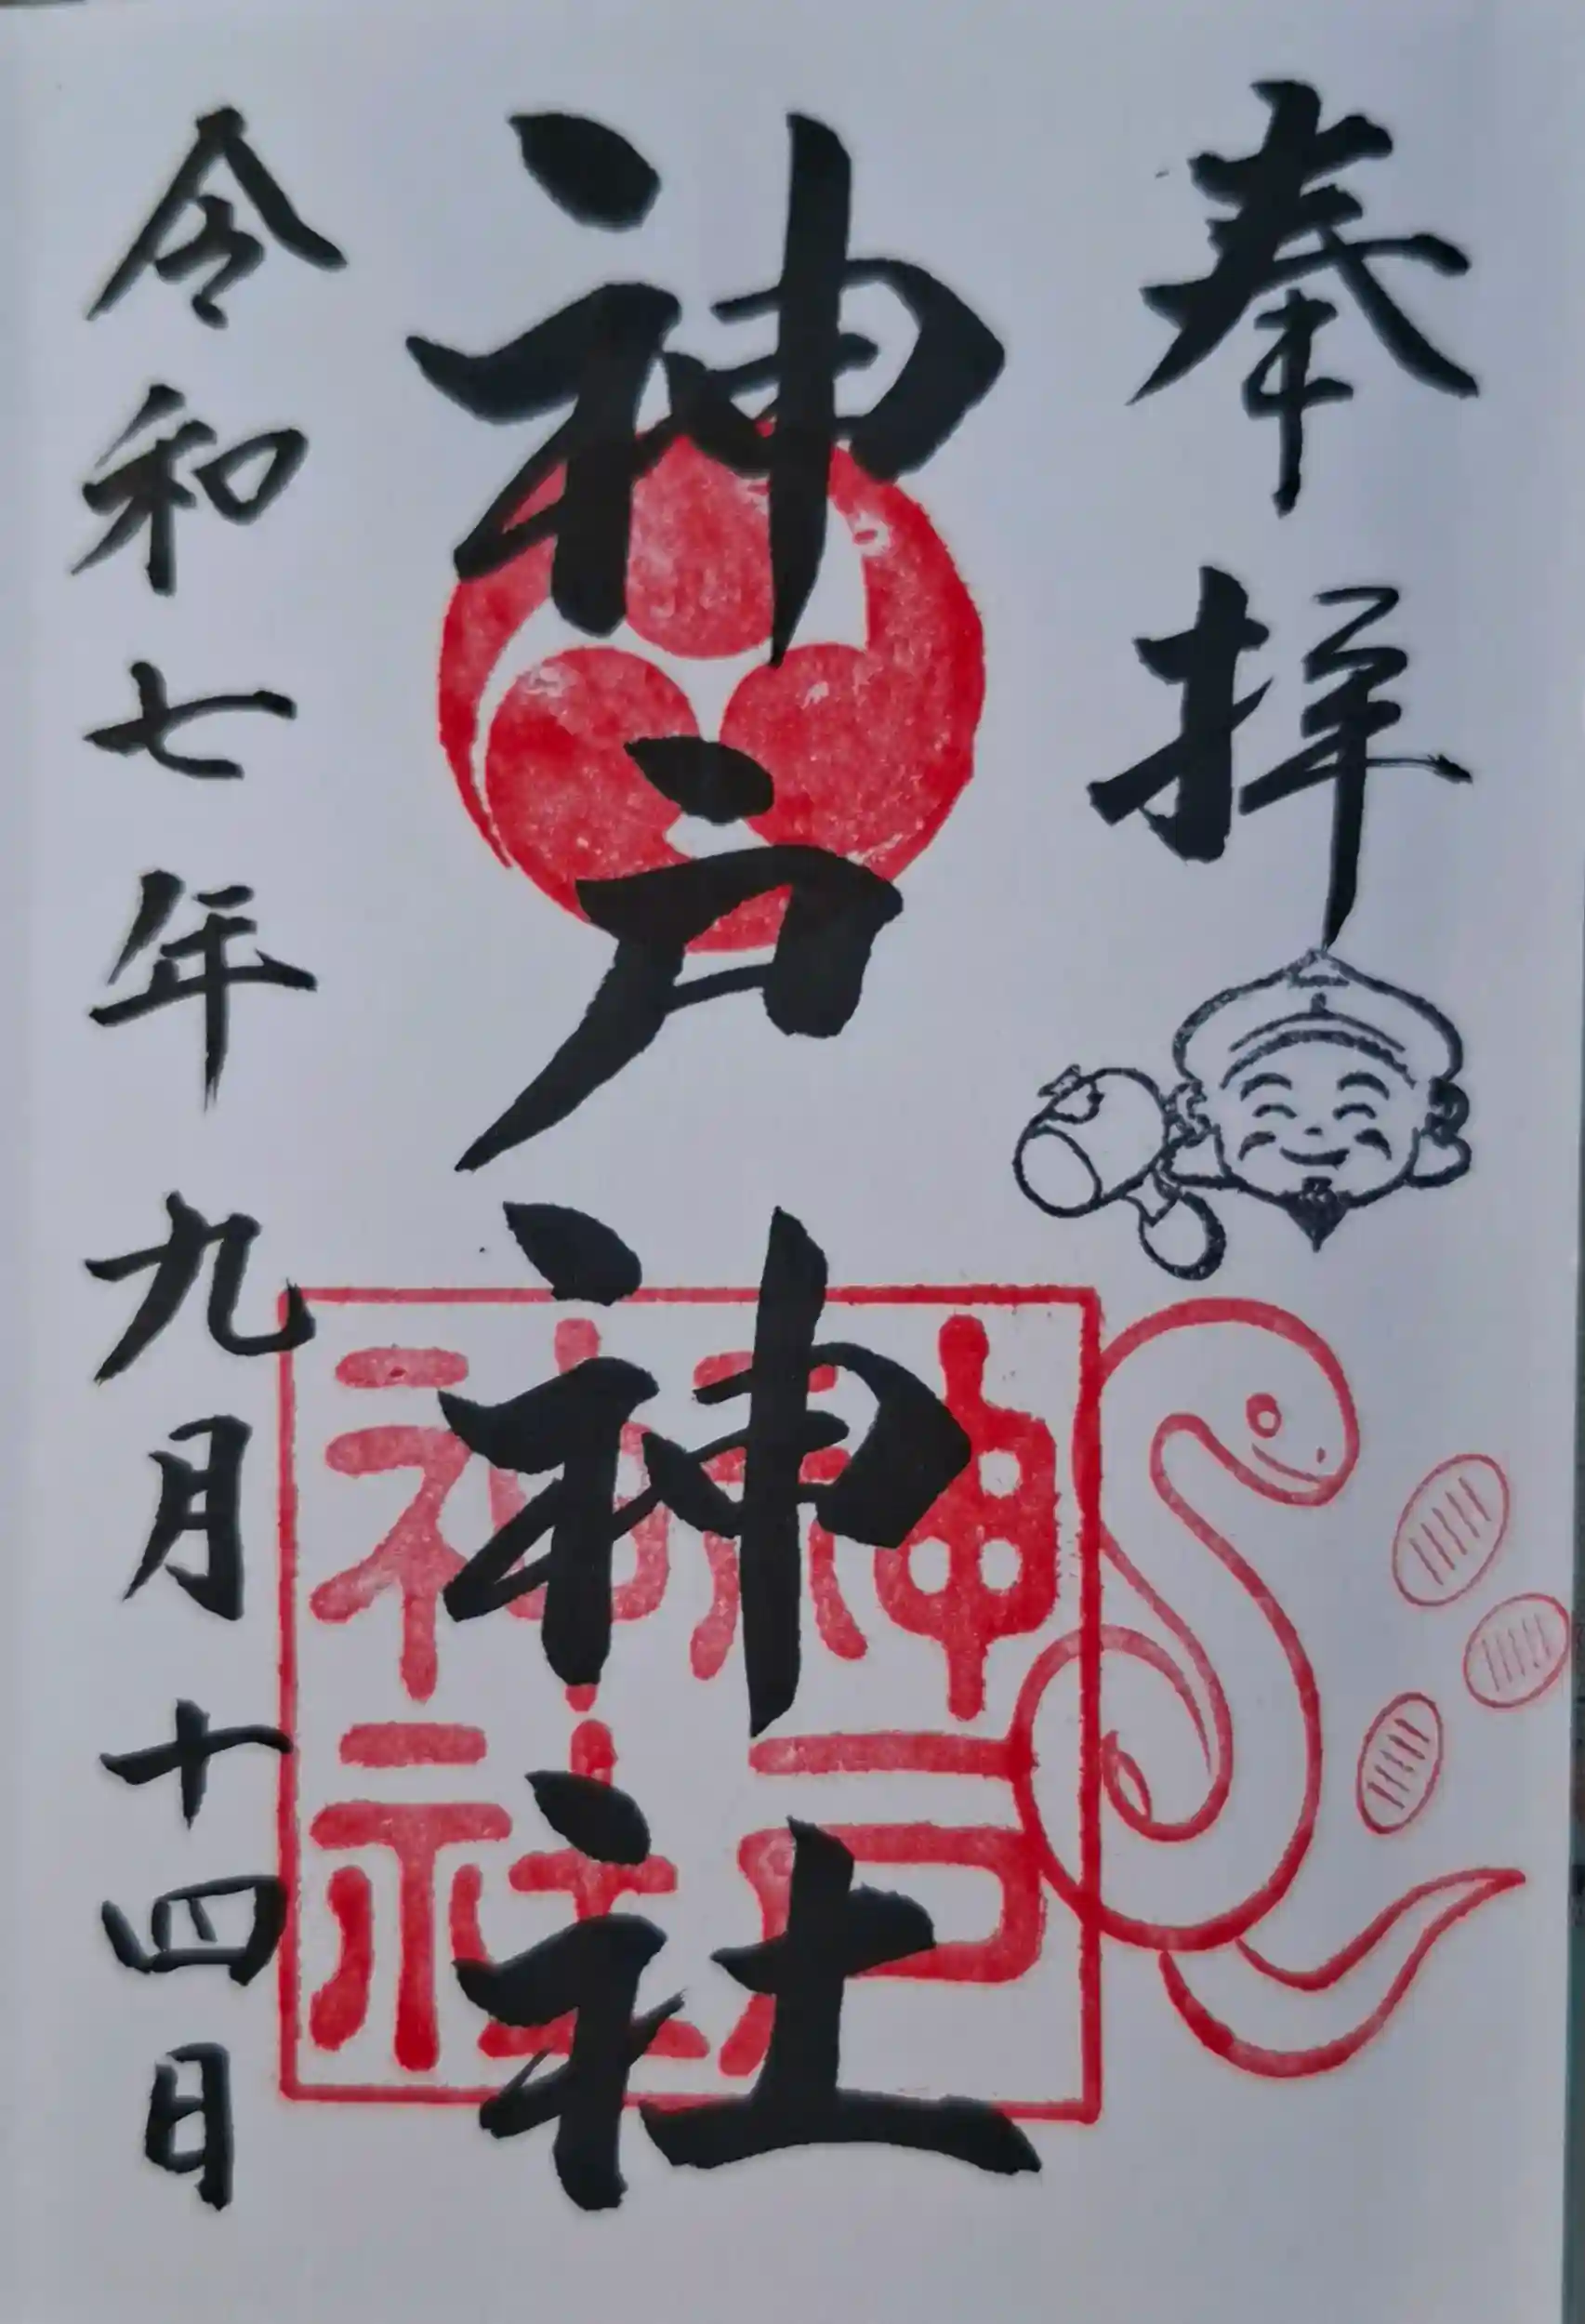 奉拝
神戸神社
神戸神社
令和七年九月十四日